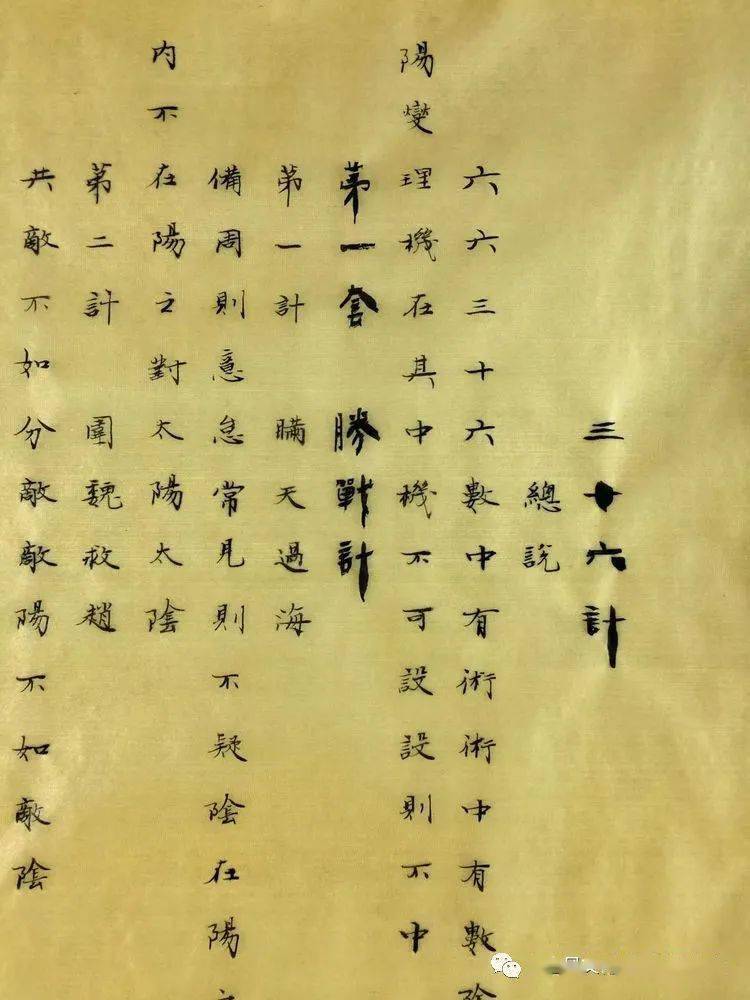 三十六計
總說
六六三十六數中有術術中有數陰
陽燮理機在其中機不可設設則不中
第一套 勝戰計
第一計 瞞天過海
備周則意怠常見則不疑陰在陽之
內不在陽之對太陽太陰
第二計 圍魏救趙
共敵不如分敵敵陽不如敵陰